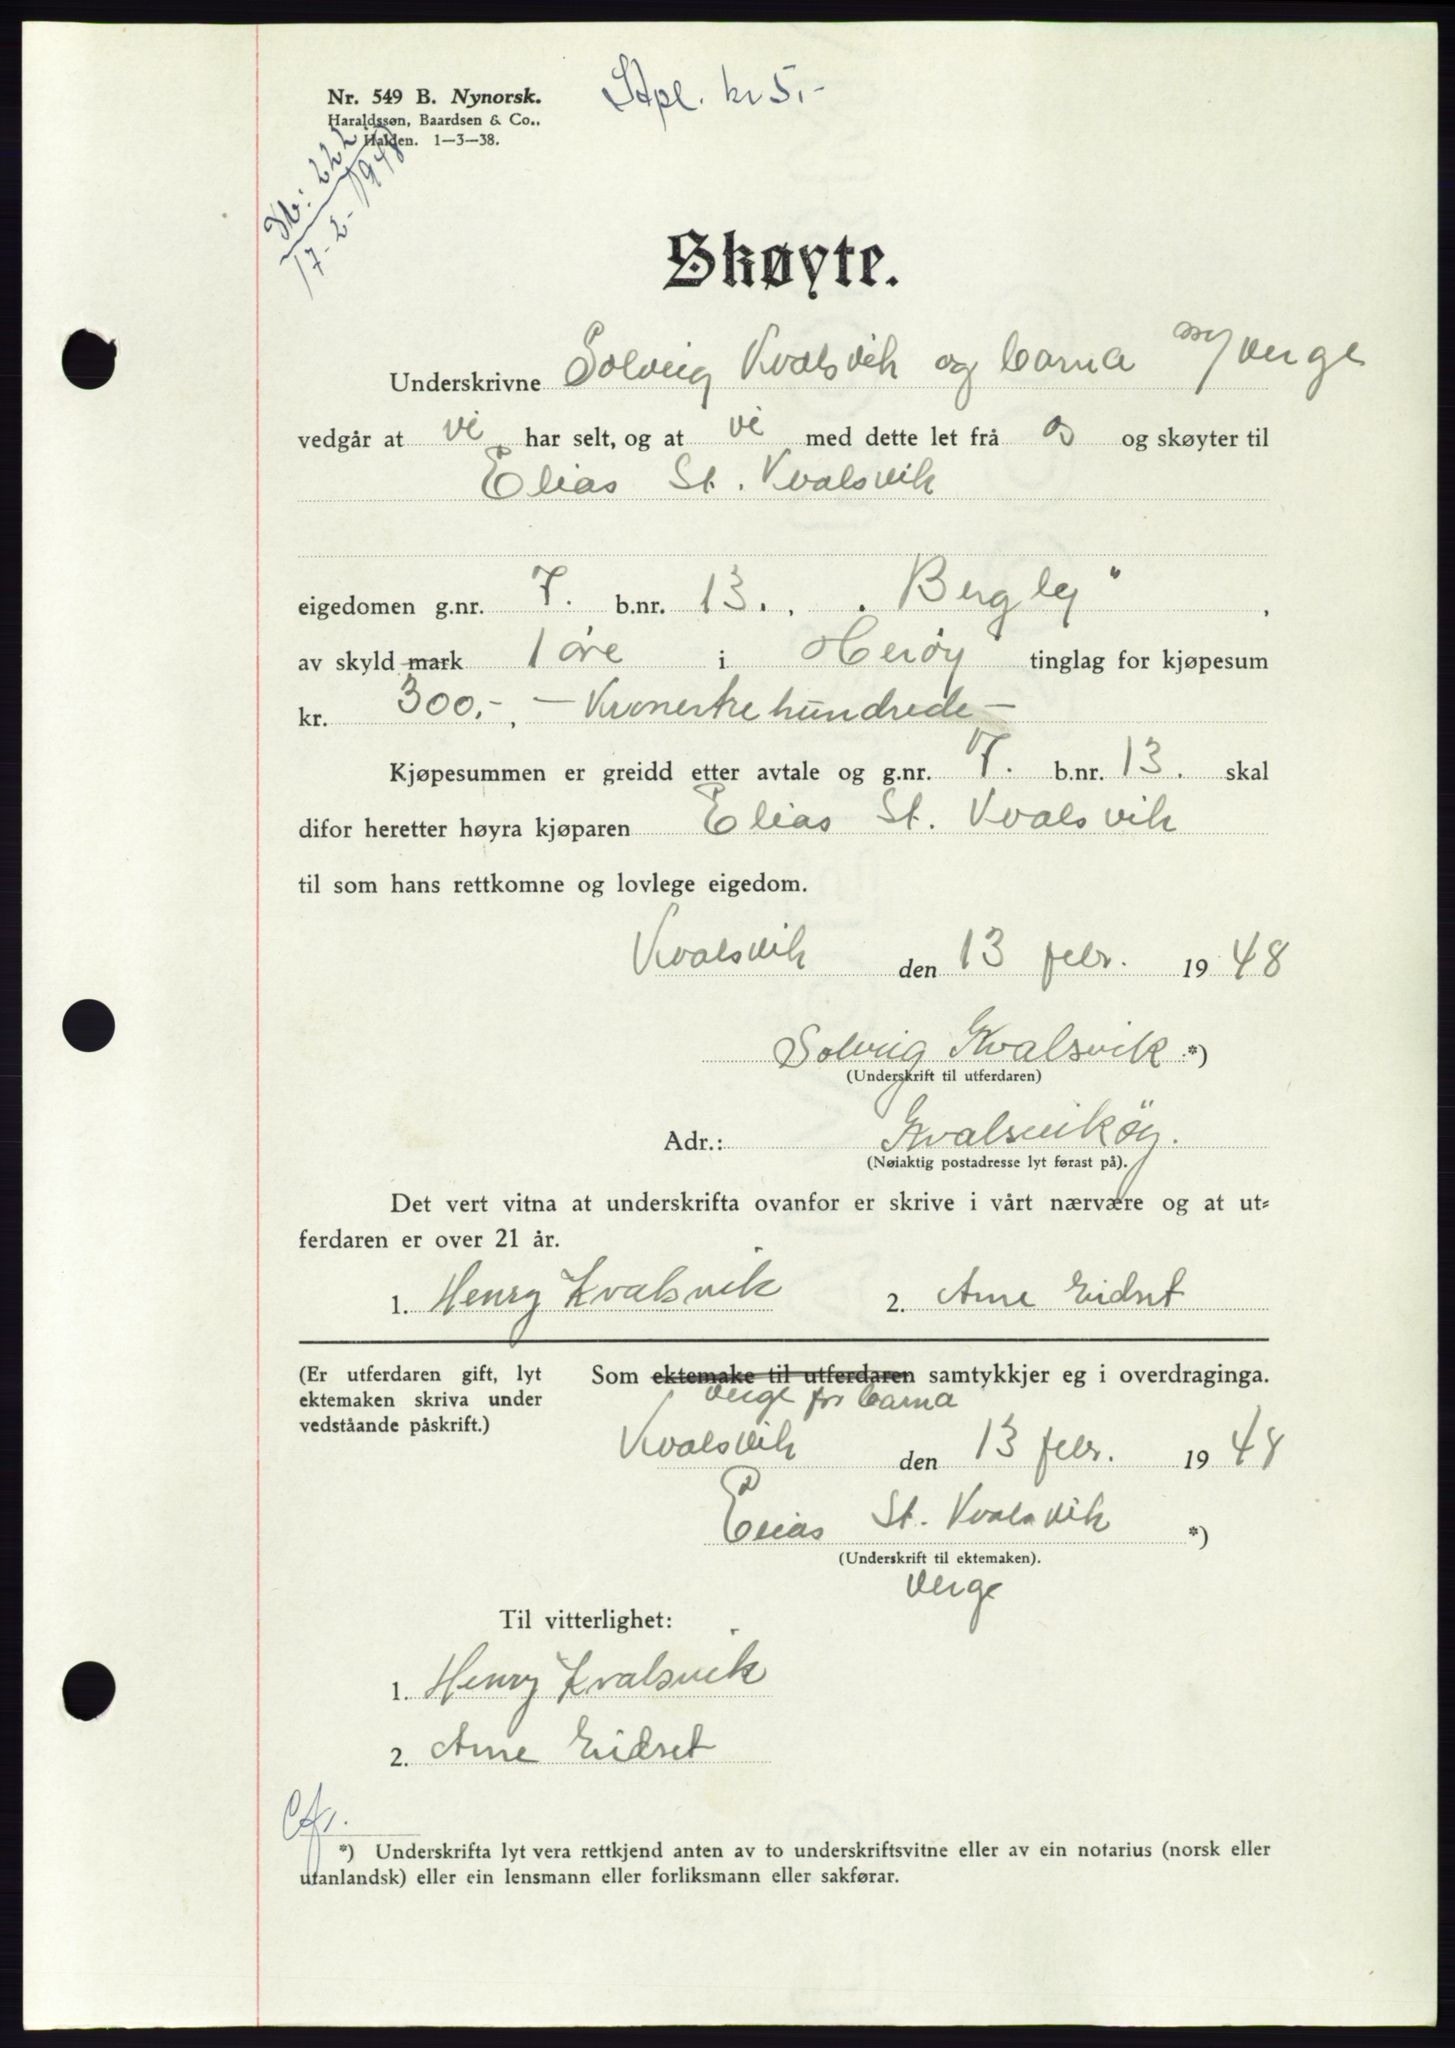 Nr. 549 B. Nynorsk.
Haraldssøn, Baardsen & Co.,
Halden. 1—3—38.
Stpl. kr 5,-
Db: 222
17-2-1948
Skøyte.
Underskrivne Solveig Kvalsvik og barna verge
vedgår at vi har selt, og at vi med dette let frå os og skøyter til
Elias St. Kvalsvik
eigedomen g.nr. 7. b.nr. 13., „Bergly",
av skyld mark 1 øre i Herøy tinglag for kjøpesum
kr. 300,-, – Kroner tre hundrede –
Kjøpesummen er greidd etter avtale og g.nr. 7. b.nr. 13. skal
difor heretter høyra kjøparen Elias St. Kvalsvik
til som hans rettkomne og lovlege eigedom.
Kvalsvik den 13 febr. 1948
Solveig Kvalsvik *)
(Underskrift til utferdaren)
Adr.: Kvalsvikøy.
(Nøiaktig postadresse lyt førast på).
Det vert vitna at underskrifta ovanfor er skrive i vårt nærvære og at ut-
ferdaren er over 21 år.
1. Henry Kvalsvik 2. Arne Eidset
(Er utferdaren gift, lyt
ektemaken skriva under
vedståande påskrift.)
Som ektemake til utferdaren samtykkjer eg i overdraginga.
verge for barna
Kvalsvik den 13 febr. 1948
Elias St. Kvalsvik *)
(Underskrift til ektemaken).
verge
Til vitterlighet:
1. Henry Kvalsvik
2. Arne Eidset
*) Underskrifta lyt vera rettkjend anten av to underskriftsvitne eller av ein notarius (norsk eller
utanlandsk) eller ein lensmann eller forliksmann eller sakførar.